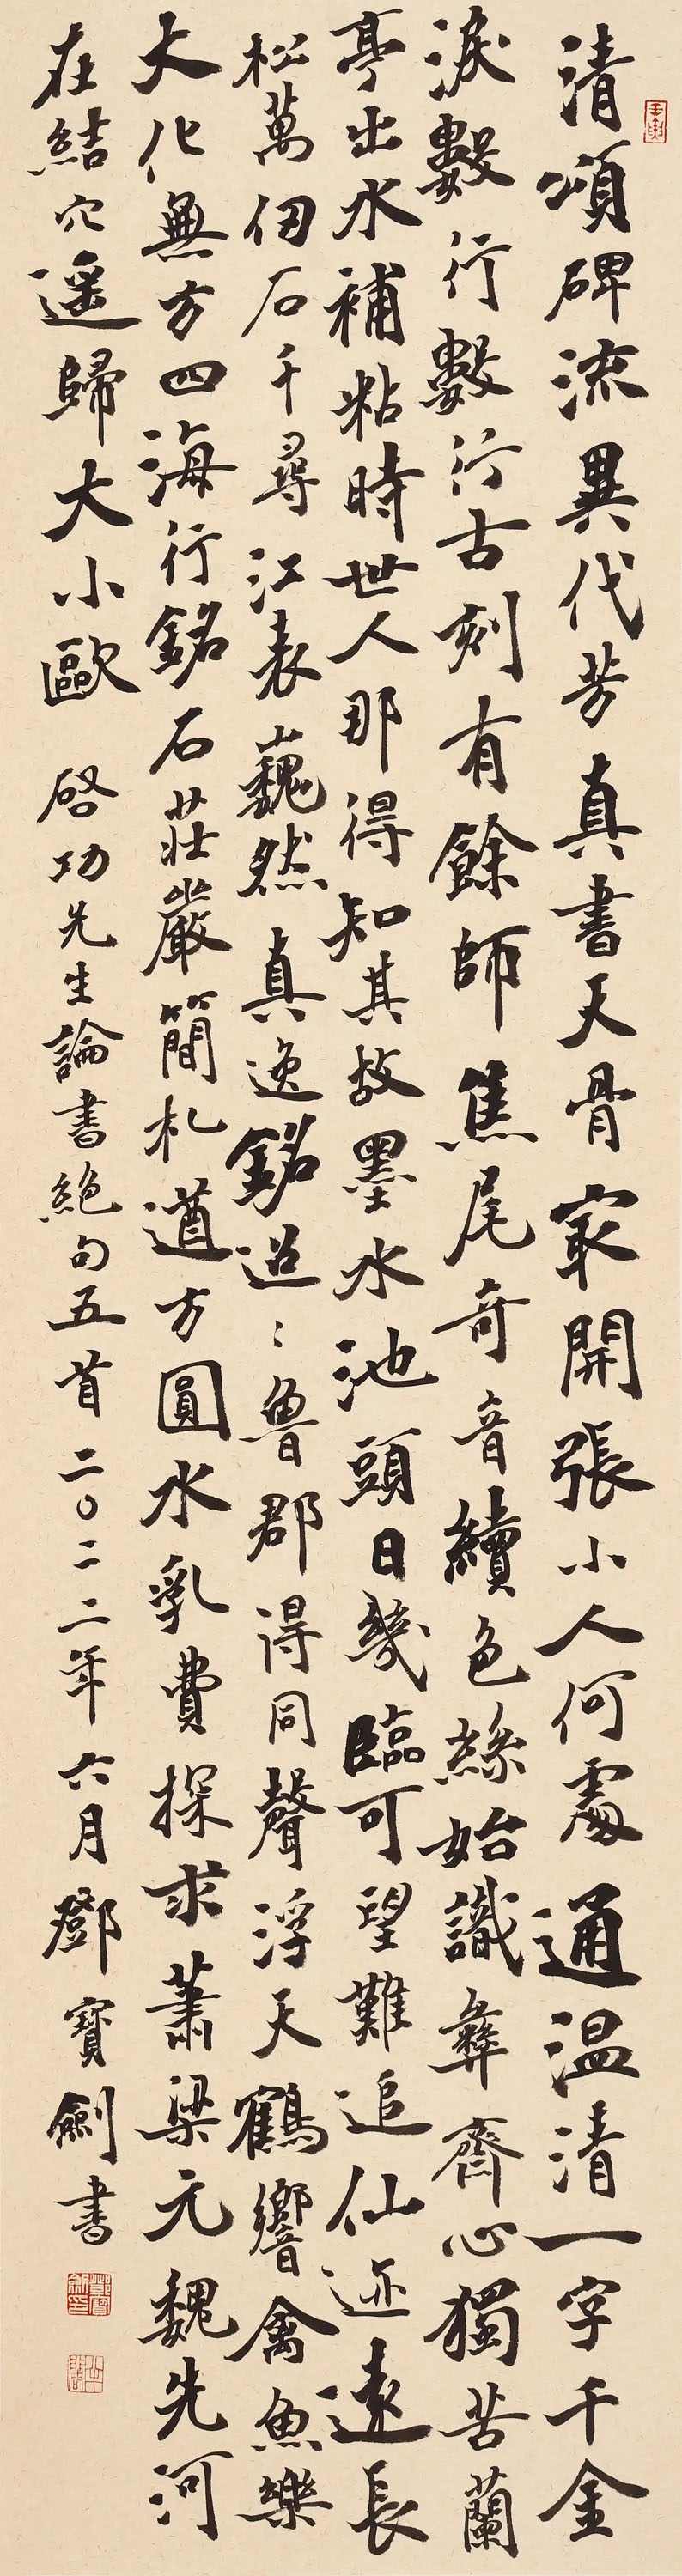 清頌碑流異代芳真書天骨最開張小人何處通温清一字千金
淚數行數行古刻有餘師焦尾奇音續色絲始識彝齋心獨苦蘭
亭出水補粘時世人那得知其故墨水池頭日幾臨可望難追仙迹遠長
松萬仞石千尋江表巍然真逸銘迢〻魯郡得同聲浮天鶴響禽魚樂
大化無方四海行銘石莊嚴簡札遒方圓水乳費探求蕭梁元魏先河
在結穴遥歸大小歐 啓功先生論書絶句五首 二〇二二年六月鄧寶劍書